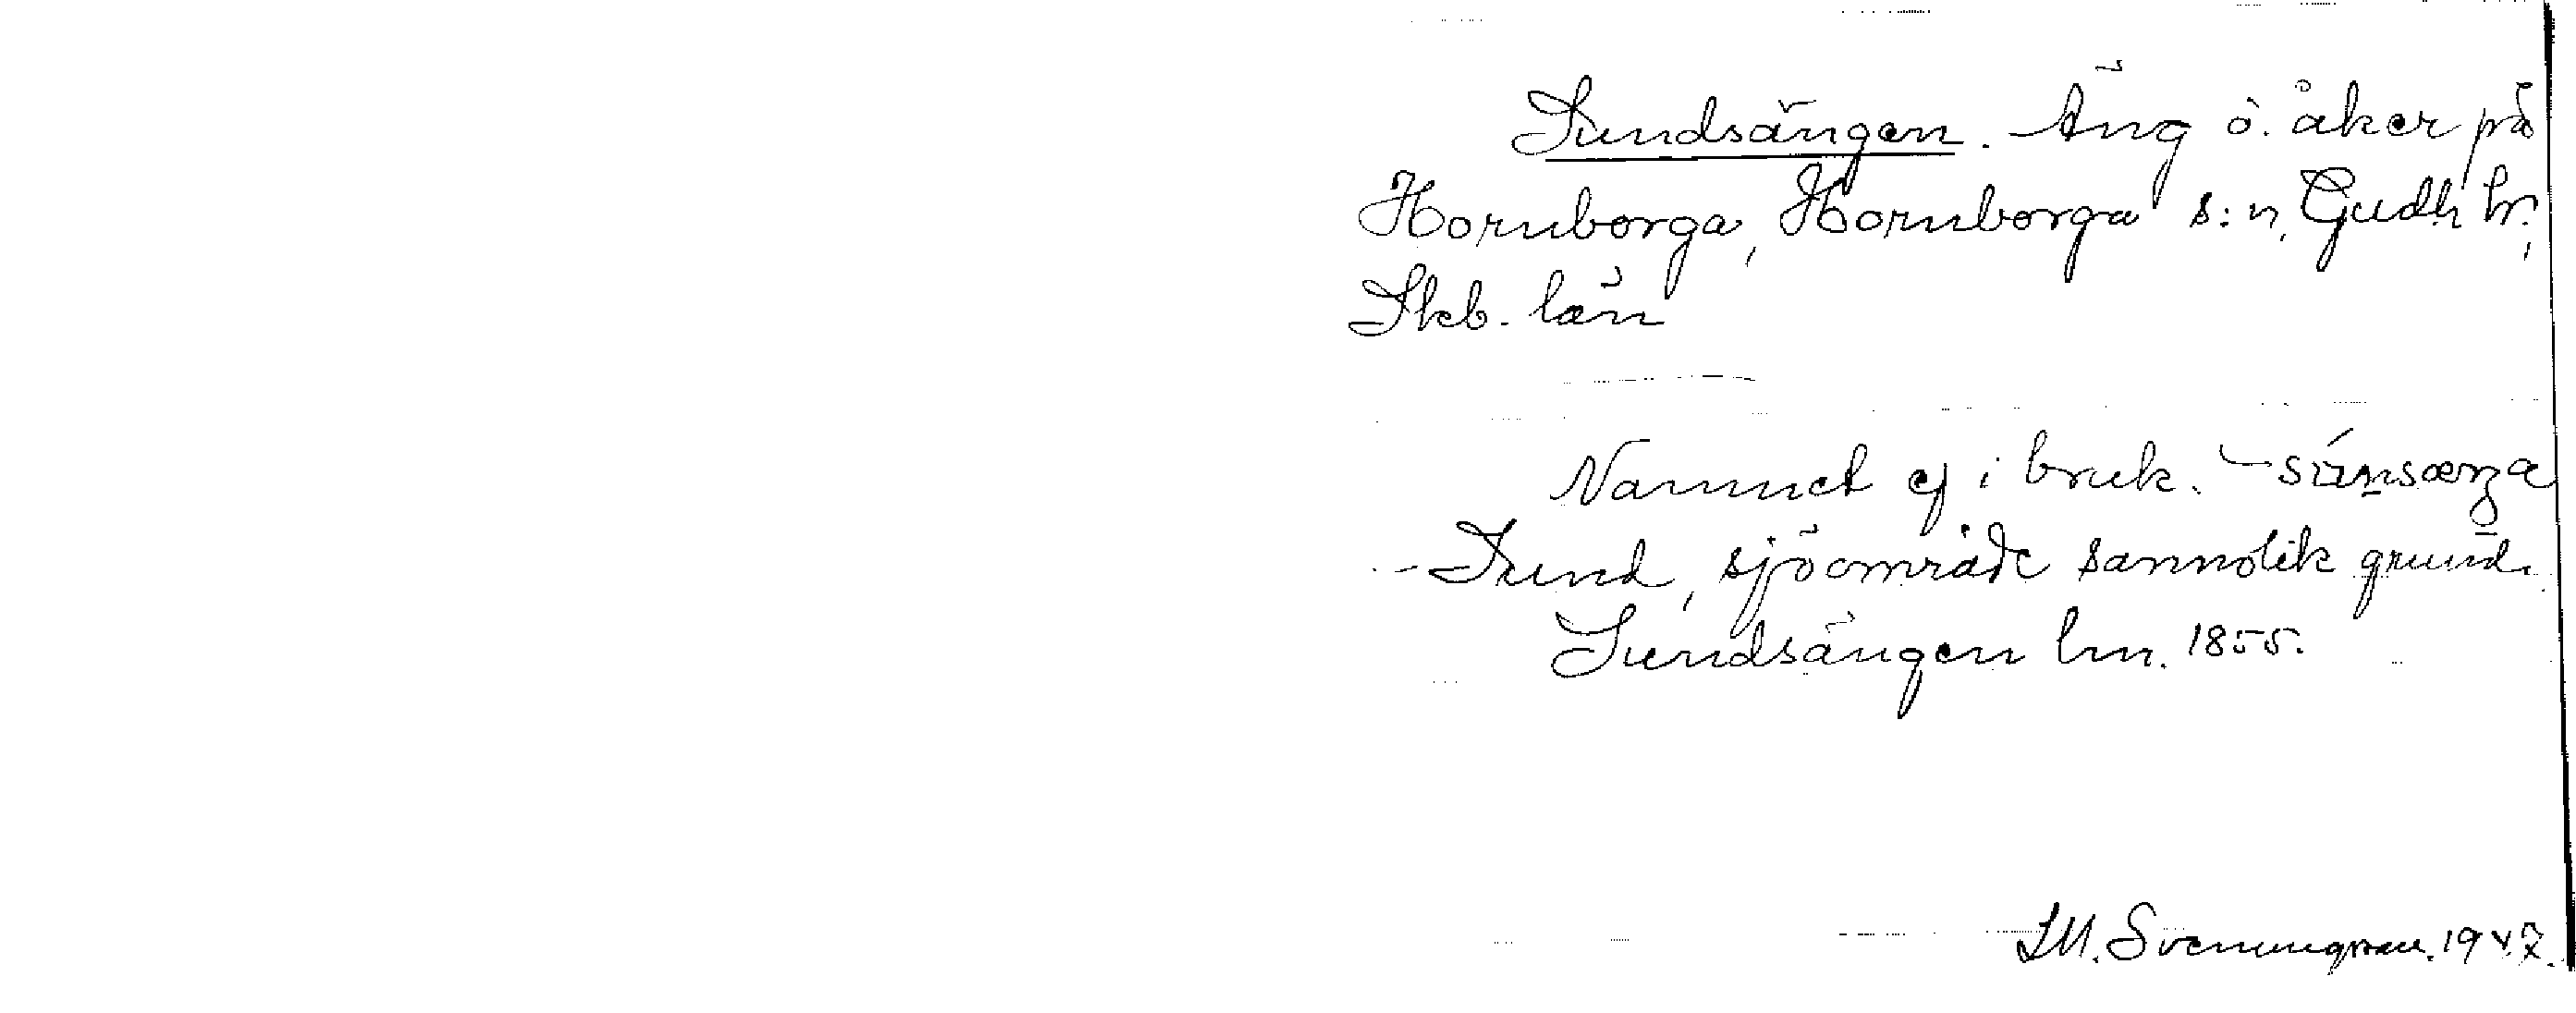 Sundsängen. Äng o. åker på
Hornborga, Hornborga s:n, Gudh. hr.,
Skb. län
Namnet ej i bruk.
Sund, sjöområde sannolik grund.
Sundsängen lm. 1855.
S.M. Svenungsson. 1947.